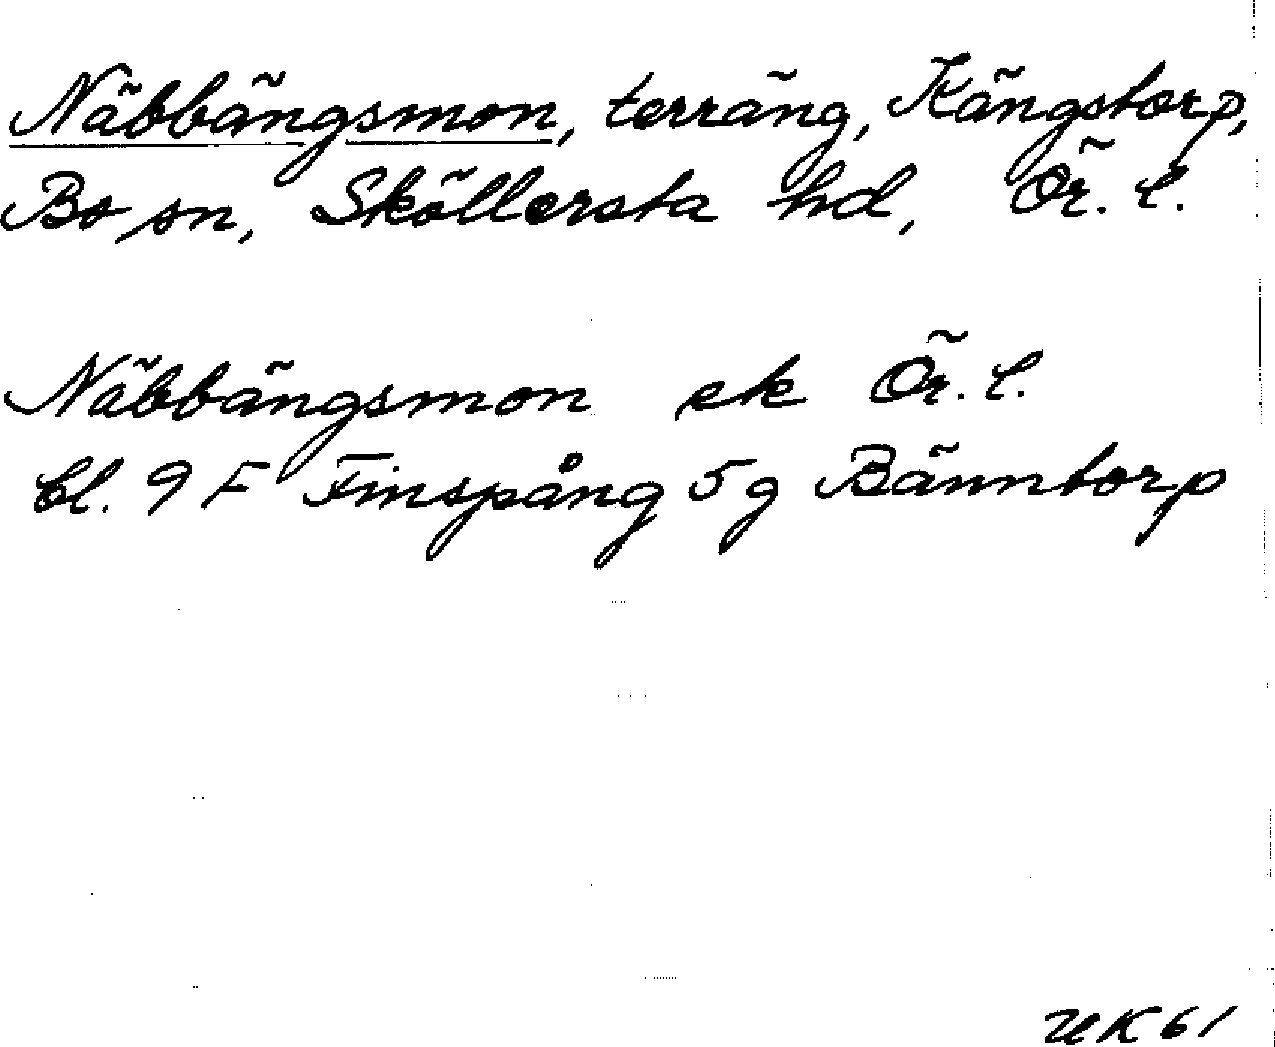 Näbbängsmon, terräng, Kängstorp,
Bo sn, Sköllersta hd, Ör. l.
Näbbängsmon ek Ör. l.
bl. 9 F Finspång 5 g Bänntorp
UK 61